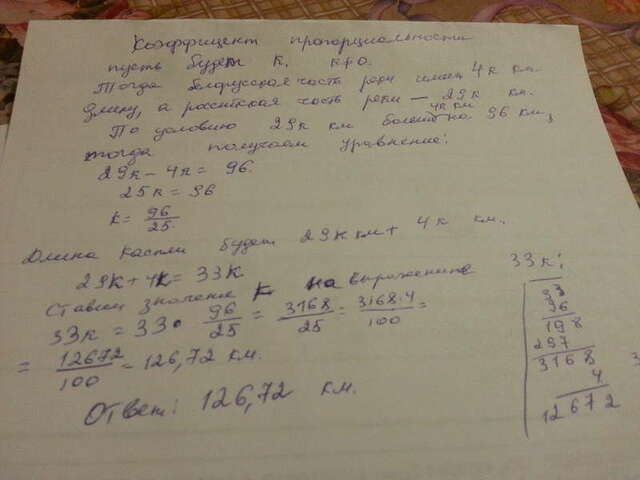 Коэффициент пропорциональности
пусть будет k. k≠0.
Тогда белорусская часть реки имеет 4k км
длину, а российская часть реки — 29k км.
4k км
По условию 29k км больше на 96 км,
тогда получаем уравнение:
29k - 4k = 96.
25k = 96
k = 96/25
Длина Каспли будет 29k км + 4k км.
29k + 4k = 33k.
Ставим значение k на выражение 33k:
33k = 33 · 96/25 = 3168/25 = 3168·4/100 =
= 12672/100 = 126,72 км.
Ответ: 126,72 км.
33
96
198
297
3168
4
12672